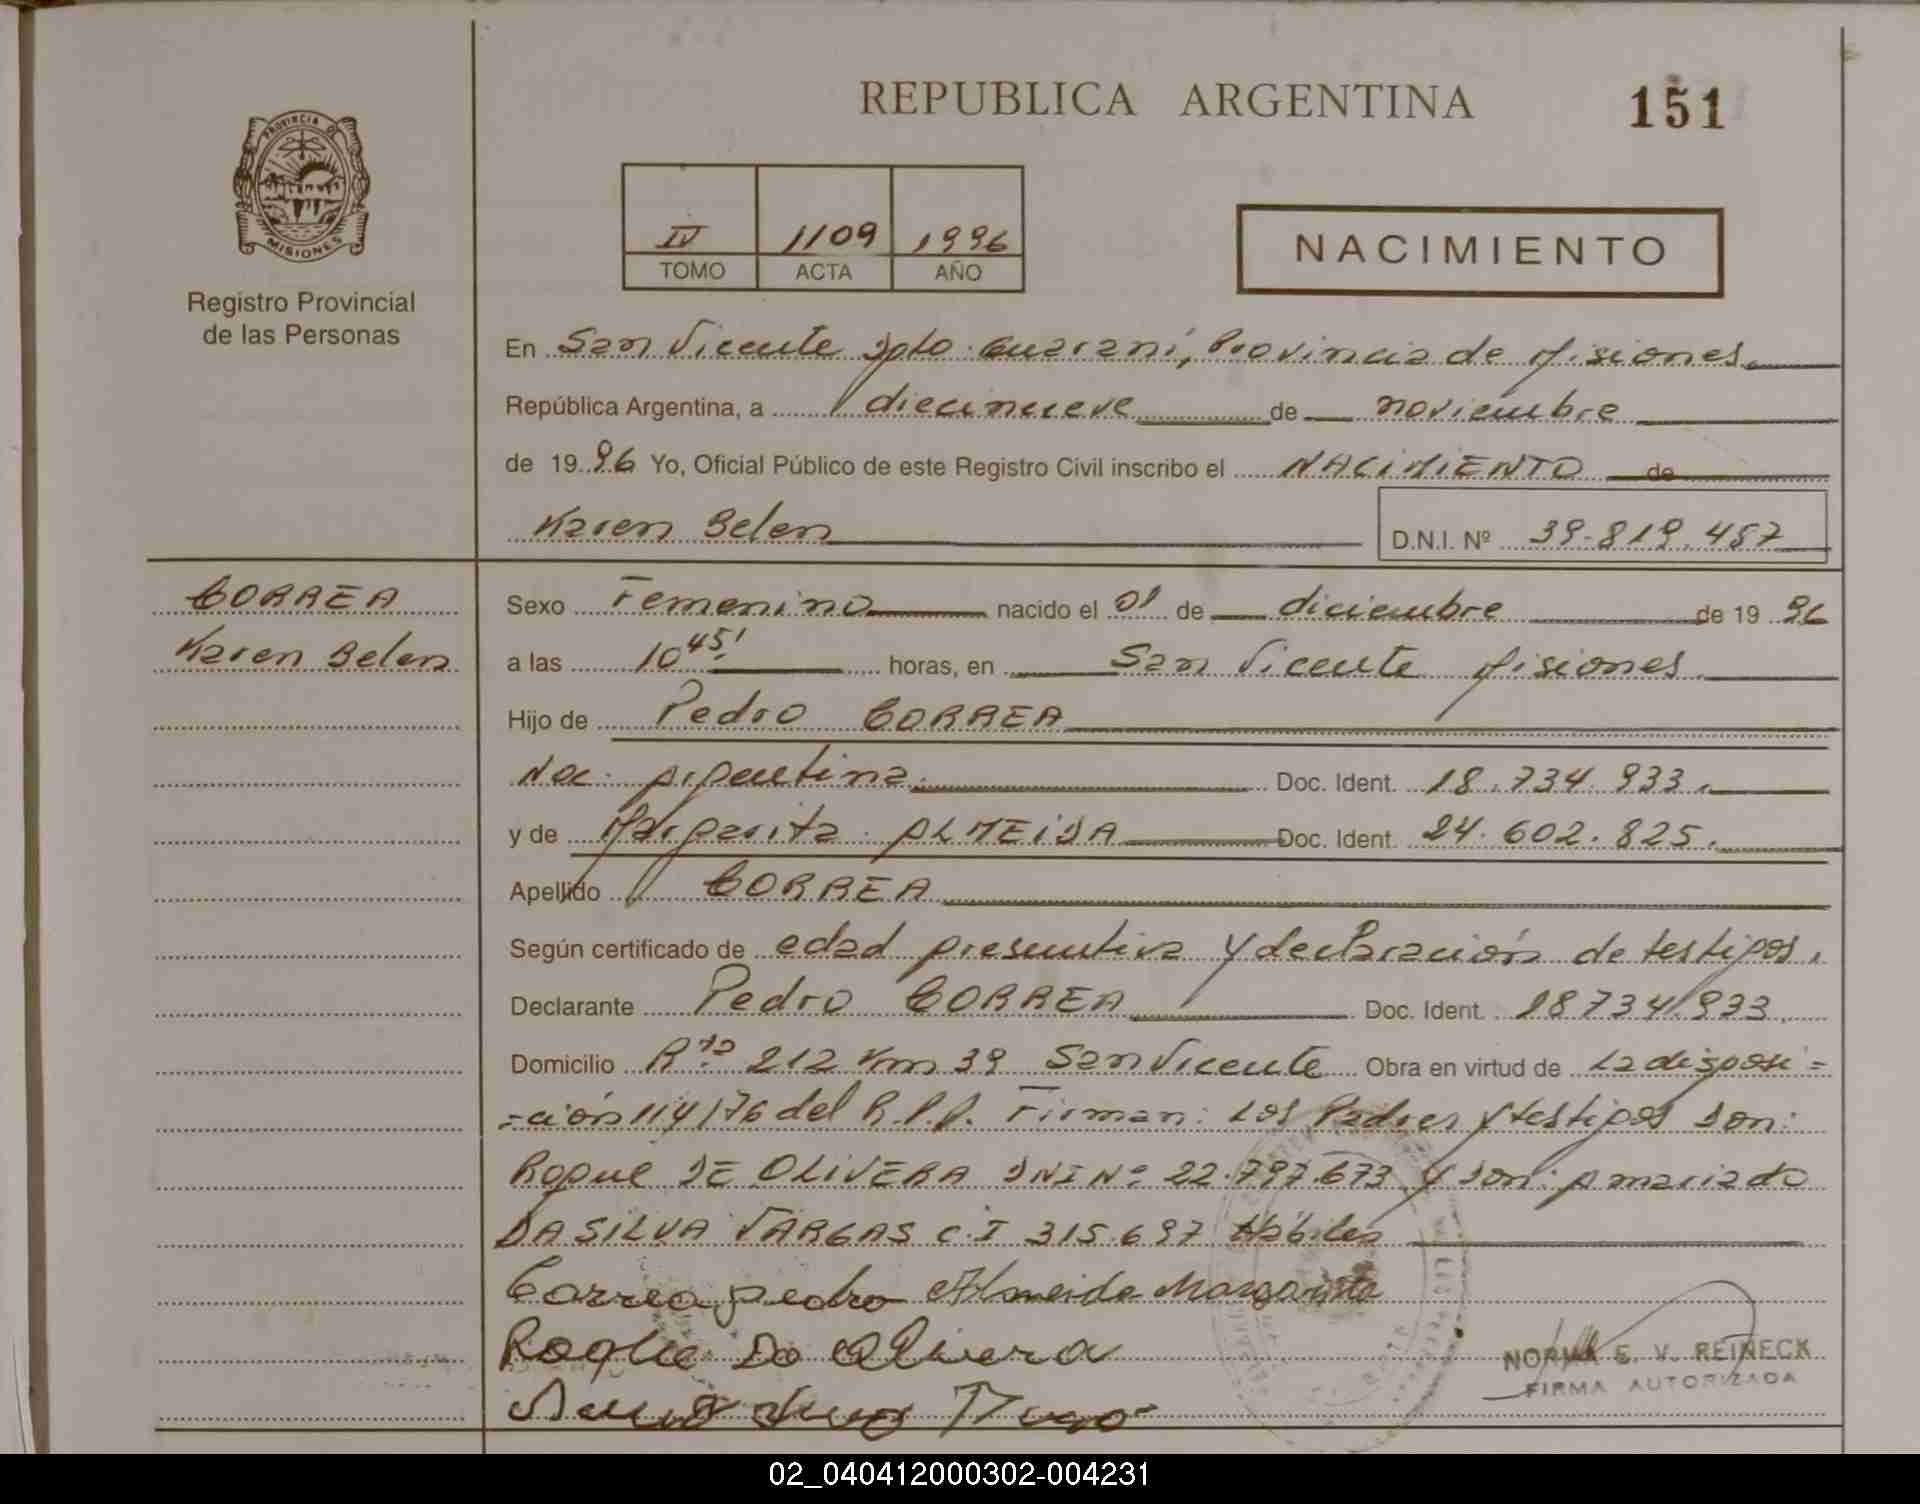 REPUBLICA ARGENTINA
151
PROVINCIA DE
MISIONES
Registro Provincial
de las Personas
IV 1109 1996
TOMO ACTA AÑO
NACIMIENTO
En San Vicente Dpto. Guaraní, Provincia de Misiones.
República Argentina, a diecinueve de noviembre
de 1996 Yo, Oficial Público de este Registro Civil inscribo el NACIMIENTO de
Karen Belen
D.N.I. Nº 39.819.457
CORREA
Karen Belen
Sexo Femenino nacido el 01 de diciembre de 1996
a las 10 45' horas, en San Vicente Misiones.
Hijo de Pedro CORREA
Nac. Argentina. Doc. Ident. 18.734.933.
y de Margarita ALMEIDA Doc. Ident. 24.602.825.
Apellido CORREA
Según certificado de edad presuntiva y declaración de testigos.
Declarante Pedro CORREA Doc. Ident. 18734.933.
Domicilio R.ta 212 Km 39 San Vicente Obra en virtud de La disposi=
=ción 114/76 del R.P.P. Firman: Los Padres y testigos son:
Roque DE OLIVERA DNI Nº 22.797.673 y don: Amariado
DA SILVA VARGAS C.I 315.697 Hábiles
Correa pedro Almeida Margarita
Roque De Olivera
NORMA E. V. REINECK
FIRMA AUTORIZADA
02_040412000302-004231